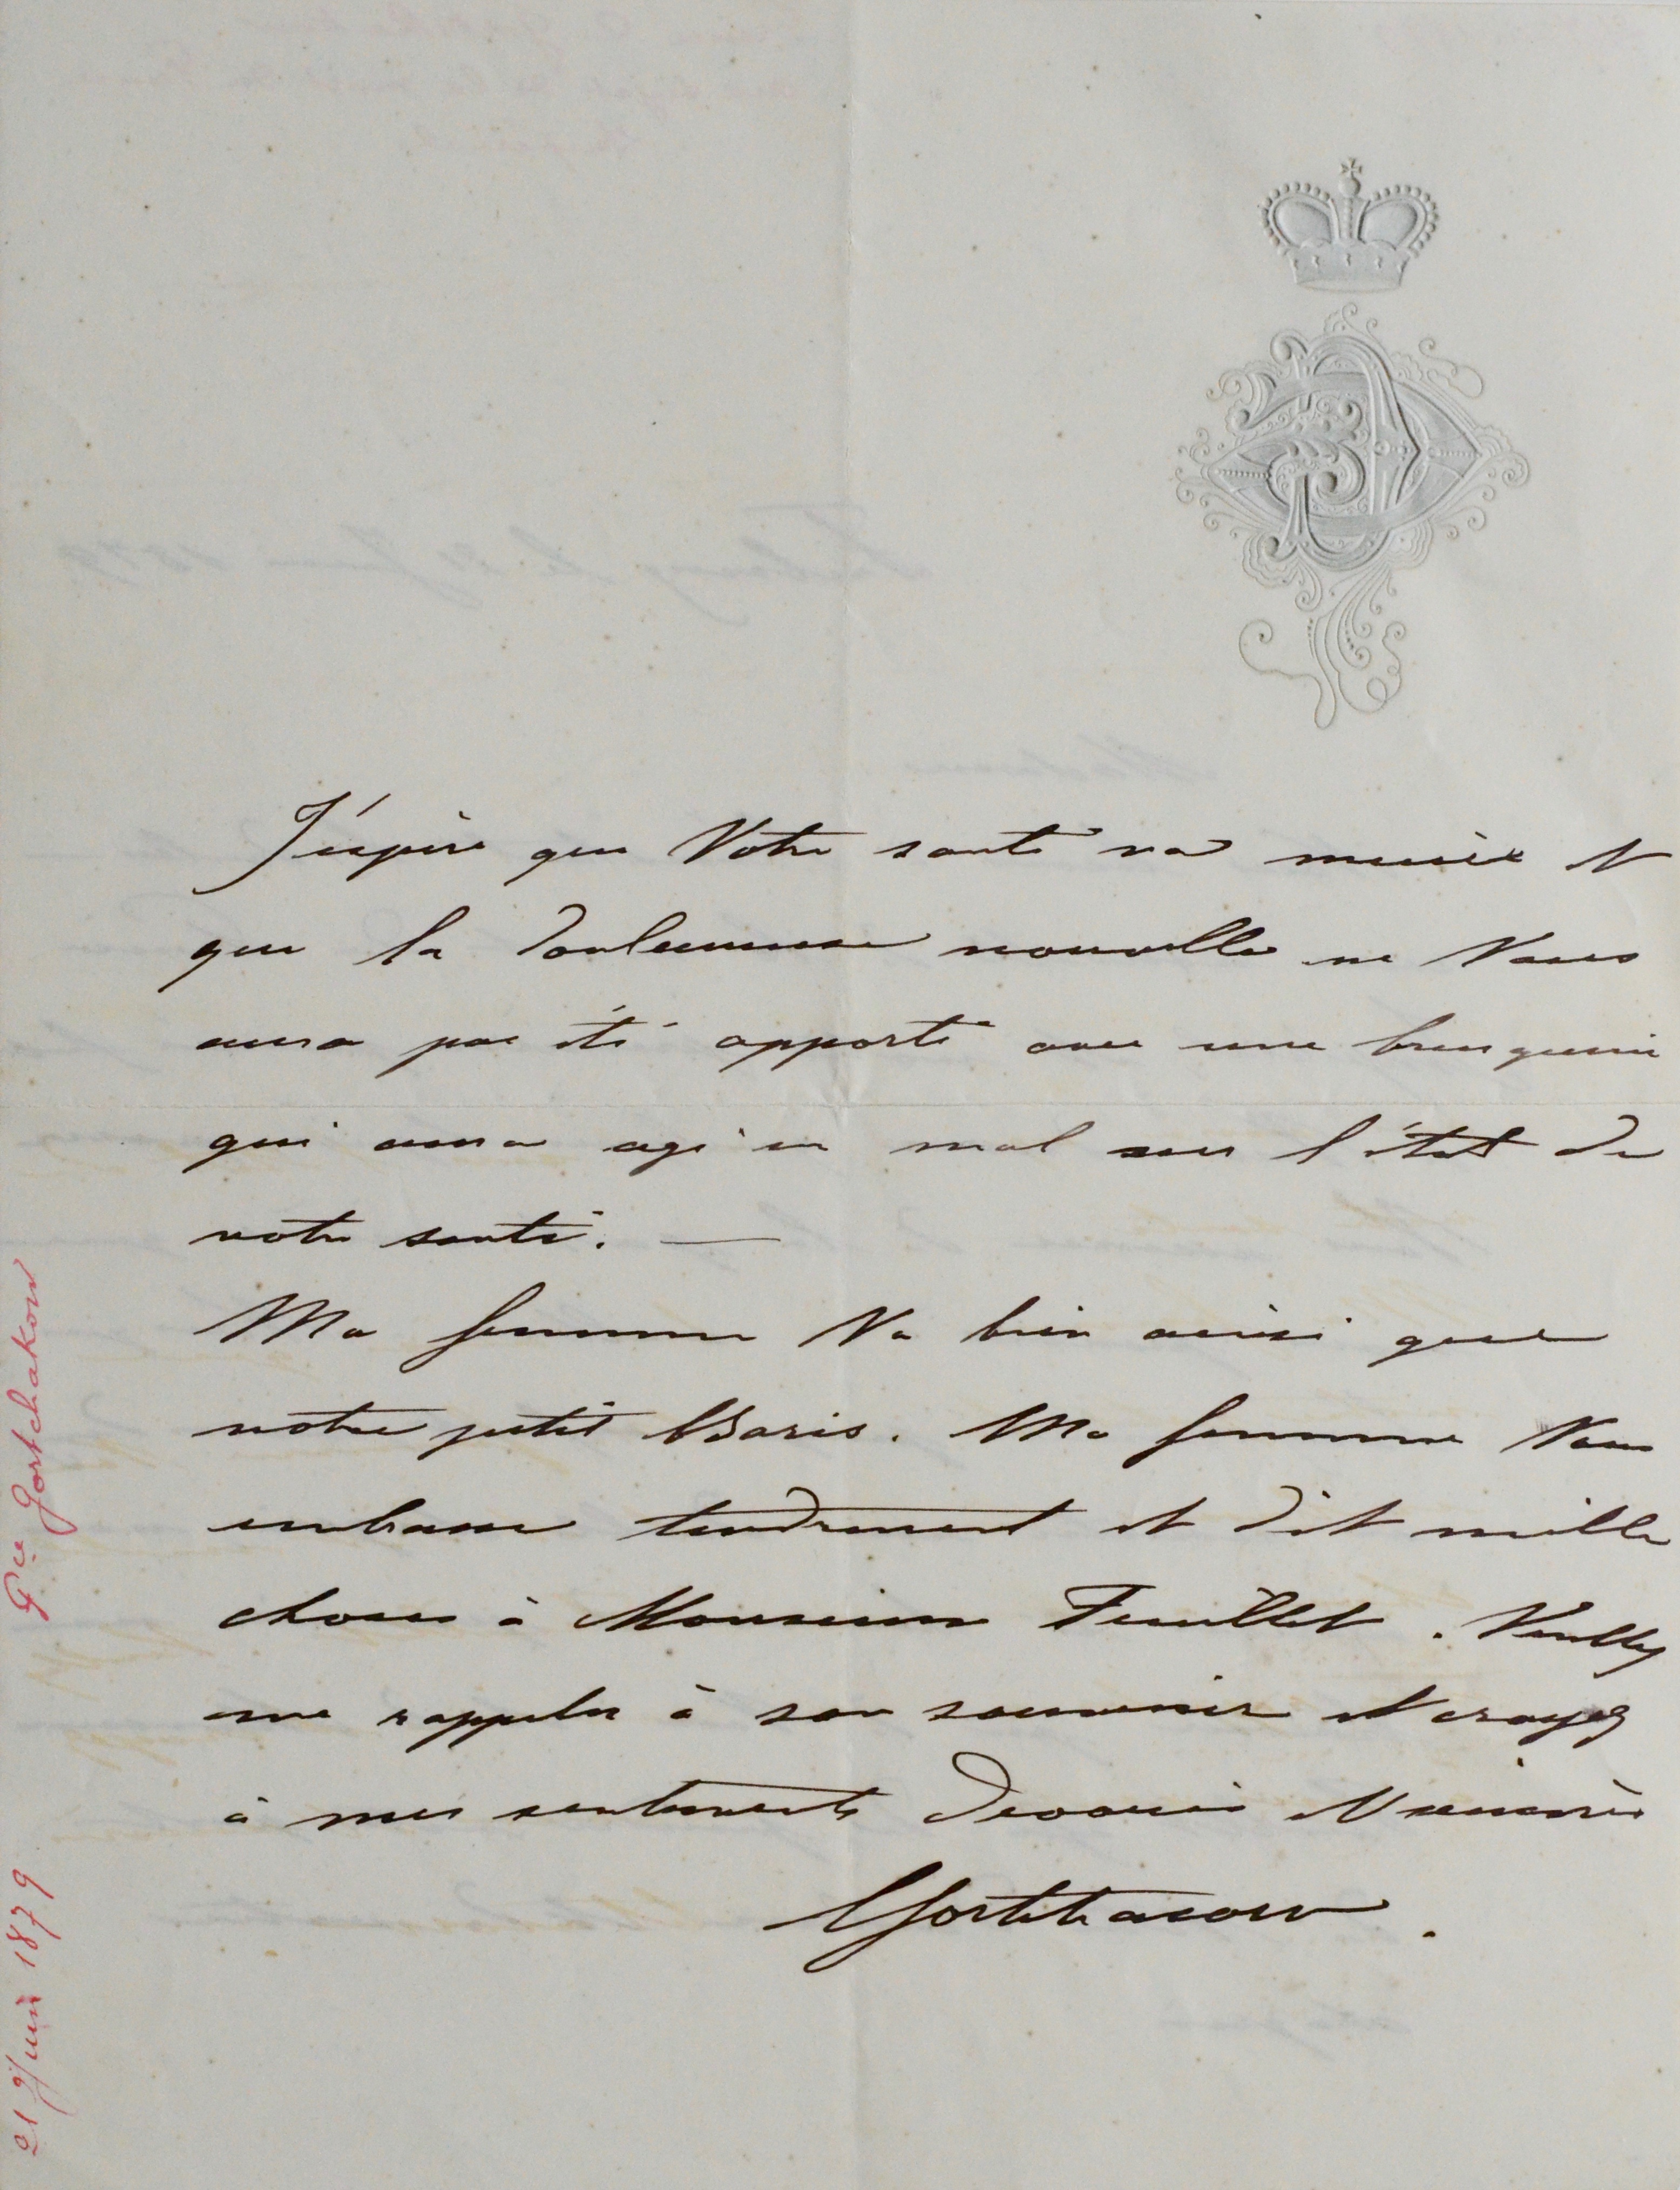 J'espère que Votre santé va mieux et
que la douloureuse nouvelle ne Vous
aura pas été apporté avec une brusquerie
qui aura agi en mal sur l'état de
votre santé. —
Ma femme Va bien ainsi que
notre petit Boris. Ma femme Vous
embrasse tendrement et dit mille
choses à Monsieur Feuillet. Veuillez
me rappeler à son souvenir et croyez
à mes sentiments devoués et sincères
Gortchacow.
Pce Gortchakow
21 Juin 1879